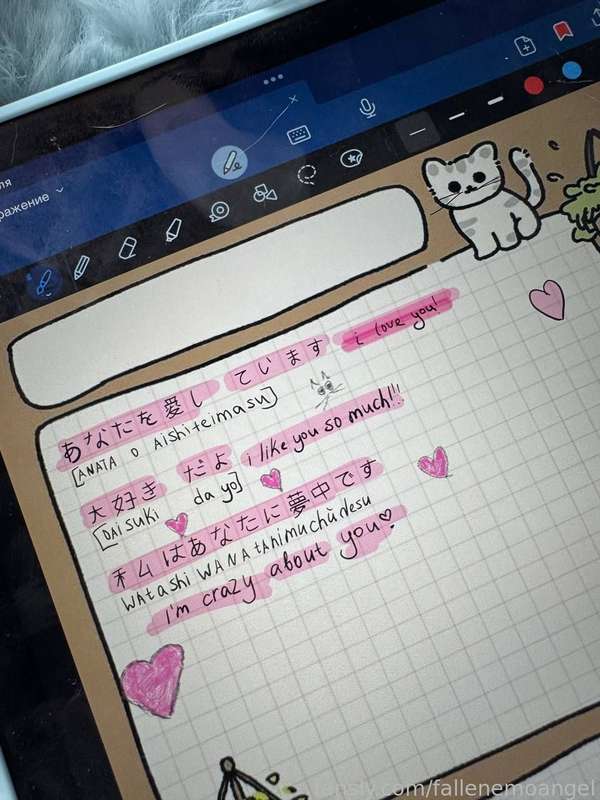 ля
ражение
あなたを愛し ています i love you!
[ANATA O AiShiteimasu]
大好き だよ i like you so much!!!
[DAisuki da yo]
私はあなたに夢中です
WAtAshi WA NA tAnimuchūdesu
I'm crazy about you♡
fansly.com/fallenemoangel